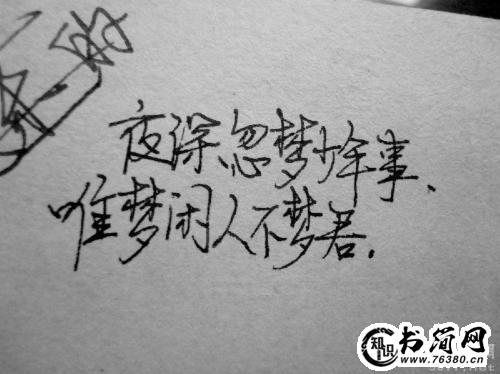 夜深忽梦少年事、
唯梦闲人不梦君.
知识
书简网
www.76380.cn